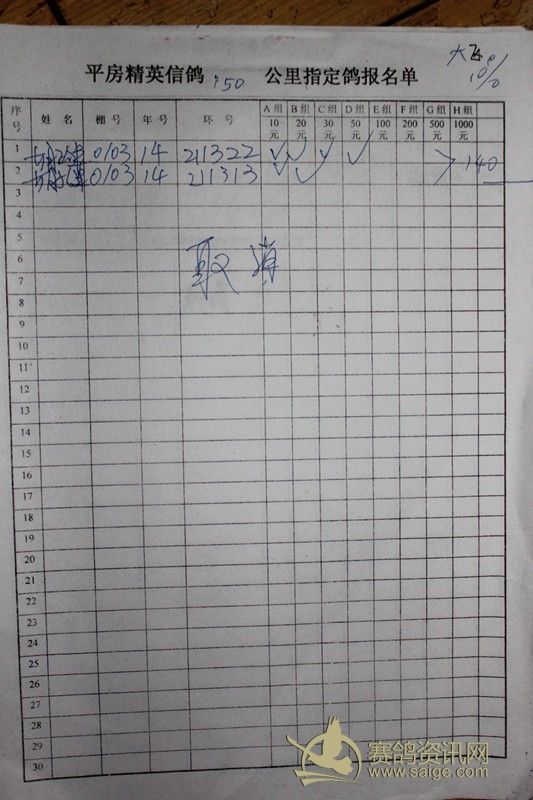 大飞
10%
平房精英信鸽 150 公里指定鸽报名单
序号 姓名 棚号 年号 环号 A组10元 B组20元 C组30元 D组50元 E组100元 F组200元 G组500元 H组1000元
1 0103 14 211322 ✓ ✓ ✓ ✓
2 0103 14 211313 ✓ ✓ 140
3
4
5
6
取消
7
8
9
10
11
12
13
14
15
16
17
18
19
20
21
22
23
24
25
26
27
28
29
30
赛鸽资讯网
www.saige.com